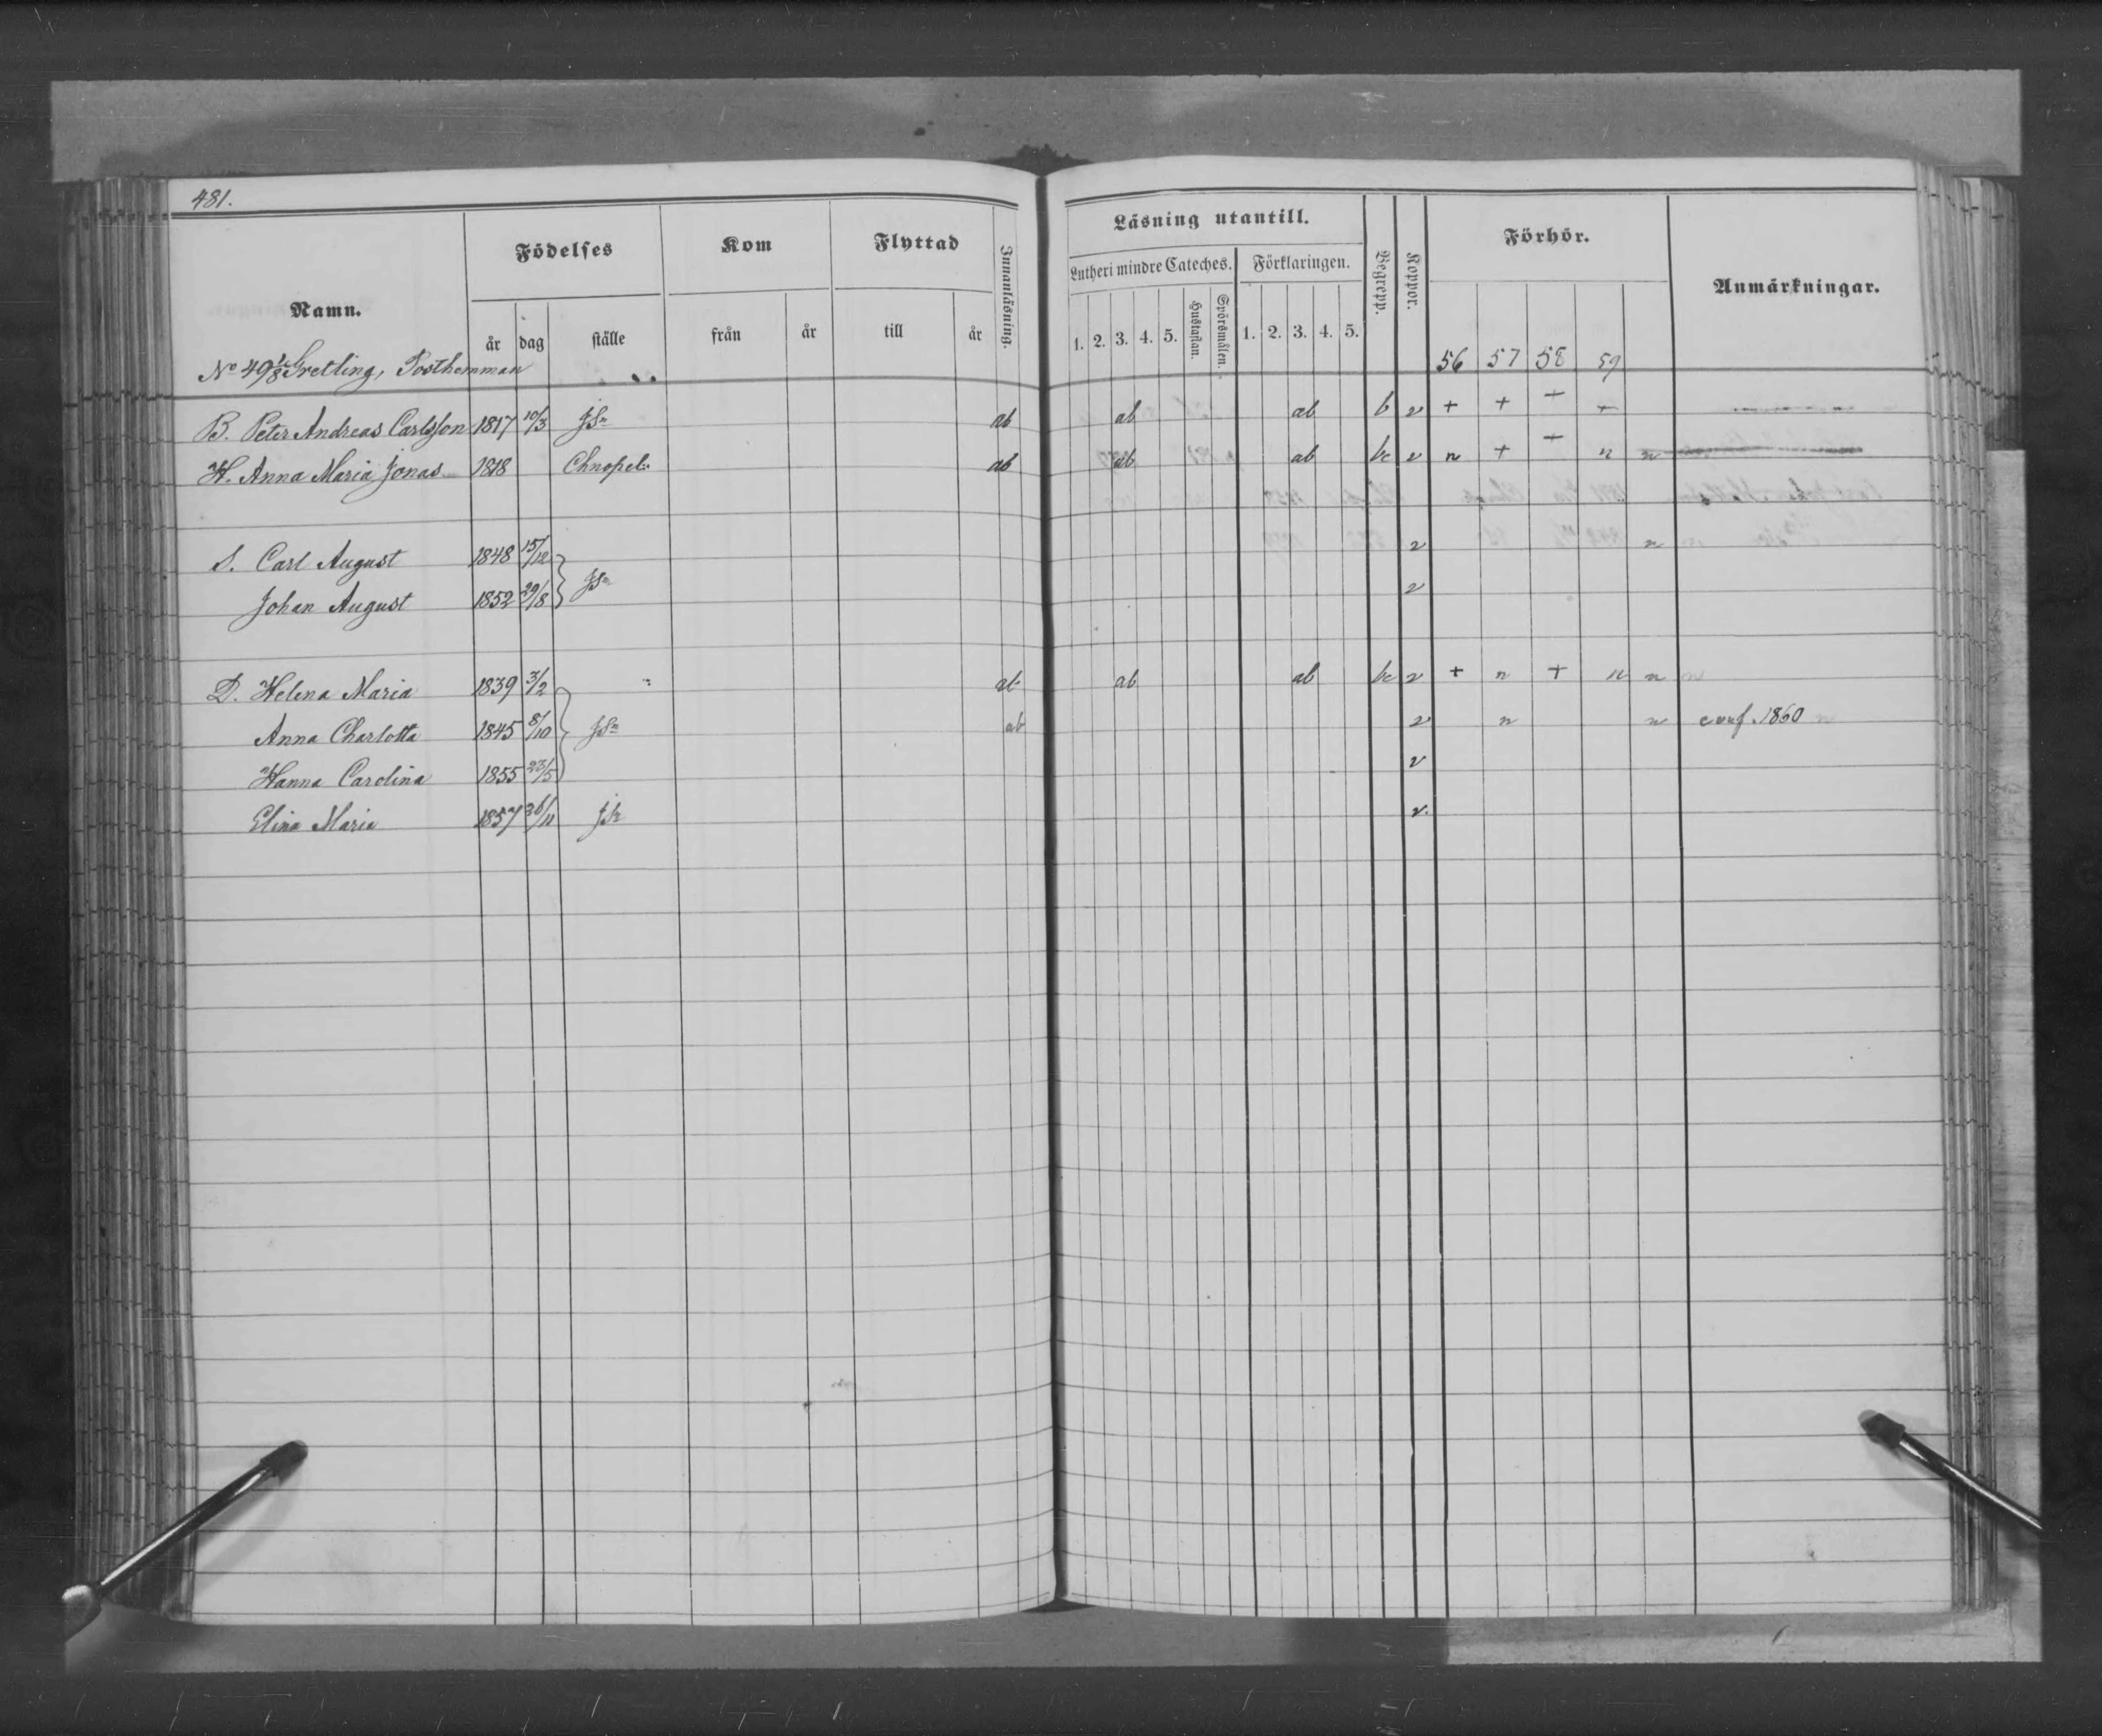 481.
Namn.
Födelses
Kom
Flyttad
Innanläsning.
år dag ställe
från år
till år
Läsning utantill.
Lutheri mindre Cateches. Förklaringen.
1. 2. 3. 4. 5. Hustaflan. Spörsmålen. 1. 2. 3. 4. 5.
Begrepp.
Koppor.
Förhör.
56 57 58 59
Anmärkningar.
No 49 1/8 Gretling, Posthemman
B. Peter Andreas Carlsson 1817 10/3 JSn ab ab ab b v + + + +
H. Anna Maria Jonas 1818 Chnopel: ab ab ab bc v n + + n n
S. Carl August 1848 15/12 v n
Johan August 1852 29/8 JSn v
D. Helena Maria 1839 3/2 ab ab ab bc v + n + n n
Anna Charlotta 1845 8/10 JSn ab v n n conf. 1860
Hanna Carolina 1855 23/5 v
Elina Maria 1857 26/11 JSn v.